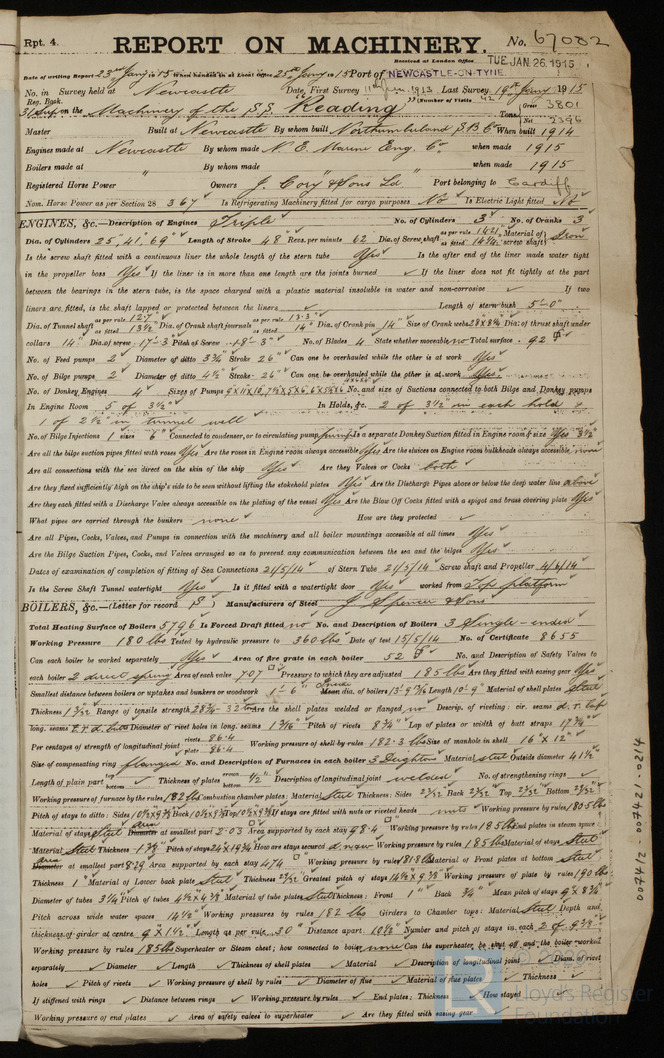 Rpt. 4.
REPORT ON MACHINERY. No. 67082
Received at London Office TUE. JAN. 26. 1915
Date of writing Report 23rd Jany 1915 When handed in at Local Office 25th Jany 1915 Port of NEWCASTLE-ON-TYNE
No. in Survey held at Newcastle Date, First Survey Last Survey 19th Jany 1915
Reg. Book.
on the Machinery of the S.S. Reading (Number of Visits 42)
Tons Gross 3801 Net 2396
Master Built at Newcastle By whom built Northumberland S.B. Co When built 1914
Engines made at Newcastle By whom made N. E. Marine Eng. Co when made 1915
Boilers made at " By whom made " when made 1915
Registered Horse Power Owners J. Cory & Sons Ld Port belonging to Cardiff
Nom. Horse Power as per Section 28 367 Is Refrigerating Machinery fitted for cargo purposes No Is Electric Light fitted No
ENGINES, &c.—Description of Engines Triple No. of Cylinders 3 No. of Cranks 3
Dia. of Cylinders 25, 41, 69 Length of Stroke 48" Revs. per minute 62 Dia. of Screw shaft as per rule 14.21 as fitted 14 3/4 Material of screw shaft Iron
Is the screw shaft fitted with a continuous liner the whole length of the stern tube Yes Is the after end of the liner made water tight
in the propeller boss Yes If the liner is in more than one length are the joints burned If the liner does not fit tightly at the part
between the bearings in the stern tube, is the space charged with a plastic material insoluble in water and non-corrosive If two
liners are fitted, is the shaft lapped or protected between the liners Length of stern bush 5'-0"
Dia. of Tunnel shaft as per rule 12.7 as fitted 13 1/2" Dia. of Crank shaft journals as per rule 13.3" as fitted 14" Dia. of Crank pin 14" Size of Crank webs 23 x 8 3/4 Dia. of thrust shaft under
collars 14" Dia. of screw 17'-3 Pitch of Screw 18'-3" No. of Blades 4 State whether moveable no Total surface 92
No. of Feed pumps 2 Diameter of ditto 3 3/4 Stroke 26" Can one be overhauled while the other is at work Yes
No. of Bilge pumps 2 Diameter of ditto 4 1/2 Stroke 26" Can one be overhauled while the other is at work Yes
No. of Donkey Engines 4 Sizes of Pumps No. and size of Suctions connected to both Bilge and Donkey pumps
In Engine Room 5 of 3 1/2" In Holds, &c. 2 of 3 1/2" in each hold
1 of 2 1/2 in tunnel well
No. of Bilge Injections 1 sizes 6" Connected to condenser, or to circulating pump pump Is a separate Donkey Suction fitted in Engine room & size Yes 3 1/2
Are all the bilge suction pipes fitted with roses Yes Are the roses in Engine room always accessible Yes Are the sluices on Engine room bulkheads always accessible none
Are all connections with the sea direct on the skin of the ship Yes Are they Valves or Cocks both
Are they fixed sufficiently high on the ship's side to be seen without lifting the stokehold plates Yes Are the Discharge Pipes above or below the deep water line above
Are they each fitted with a Discharge Valve always accessible on the plating of the vessel Yes Are the Blow Off Cocks fitted with a spigot and brass covering plate Yes
What pipes are carried through the bunkers none How are they protected
Are all Pipes, Cocks, Valves, and Pumps in connection with the machinery and all boiler mountings accessible at all times Yes
Are the Bilge Suction Pipes, Cocks, and Valves arranged so as to prevent any communication between the sea and the bilges Yes
Dates of examination of completion of fitting of Sea Connections 21/5/14 of Stern Tube 21/5/14 Screw shaft and Propeller 4/6/14
Is the Screw Shaft Tunnel watertight Yes Is it fitted with a watertight door Yes worked from Top platform
BOILERS, &c.—(Letter for record S) Manufacturers of Steel J. Spencer & Sons
Total Heating Surface of Boilers 5796 Is Forced Draft fitted no No. and Description of Boilers 3 Single-ended
Working Pressure 180 lbs Tested by hydraulic pressure to 360 lbs Date of test 15/5/14 No. of Certificate 8655
Can each boiler be worked separately Yes Area of fire grate in each boiler 52 No. and Description of Safety Valves to
each boiler 2 direct spring Area of each valve 7.07 Pressure to which they are adjusted 185 lbs Are they fitted with easing gear Yes
Smallest distance between boilers or uptakes and bunkers or woodwork 1'-6" Mean dia. of boilers 13'-9 9/16 Length 10'-9" Material of shell plates Steel
Thickness 1 3/32 Range of tensile strength 28 3/4-32 tons Are the shell plates welded or flanged no Descrip. of riveting: cir. seams d.r. lap
long. seams t.r.d. butt Diameter of rivet holes in long. seams 1 3/16 Pitch of rivets 8 3/4" Lap of plates or width of butt straps 17 3/4"
Per centages of strength of longitudinal joint rivets 86.4 plate 86.4 Working pressure of shell by rules 182.3 lbs Size of manhole in shell 16" x 12"
Size of compensating ring flanged No. and Description of Furnaces in each boiler 3 Deighton Material steel Outside diameter 41 1/2"
Length of plain part top bottom Thickness of plates crown bottom 1/2" Description of longitudinal joint welded No. of strengthening rings
Working pressure of furnace by the rules 182 lbs Combustion chamber plates: Material Steel Thickness: Sides 23/32 Back 23/32 Top 23/32 Bottom 23/32
Pitch of stays to ditto: Sides 10 1/2 x 9 3/8 Back 10 1/2 x 9 3/8 Top 10 1/2 x 9 3/8 If stays are fitted with nuts or riveted heads nuts Working pressure by rules 180.5 lbs
Material of stays steel Diameter area at smallest part 2.03 Area supported by each stay 98.4 Working pressure by rules 185 lbs End plates in steam space:
Material Steel Thickness 1 3/8 Pitch of stays 24 x 19 3/4 How are stays secured d.n & w Working pressure by rules 185 lbs Material of stays Steel
Diameter area at smallest part 8.29 Area supported by each stay 474 Working pressure by rules 181.8 lbs Material of Front plates at bottom Steel
Thickness 1" Material of Lower back plate Steel Thickness 29/32 Greatest pitch of stays 14 1/2 x 9 3/8 Working pressure of plate by rules 190 lbs
Diameter of tubes 3 1/4 Pitch of tubes 4 1/2 x 4 3/8 Material of tube plates Steel Thickness: Front 1" Back 3/4" Mean pitch of stays 9 x 8 3/4
Pitch across wide water spaces 14 1/2" Working pressures by rules 182 lbs Girders to Chamber tops: Material Steel Depth and
thickness of girder at centre 9 x 1 1/2 Length as per rule 30" Distance apart 10 1/2" Number and pitch of stays in each 2 of 9 3/8
Working pressure by rules 185 lbs Superheater or Steam chest; how connected to boiler none Can the superheater be shut off and the boiler worked
separately Diameter Length Thickness of shell plates Material Description of longitudinal joint Diam. of rivet
holes Pitch of rivets Working pressure of shell by rules Diameter of flue Material of flue plates Thickness
If stiffened with rings Distance between rings Working pressure by rules End plates: Thickness How stayed
Working pressure of end plates Area of safety valves to superheater Are they fitted with easing gear
© 2020
Lloyd's Register
Foundation